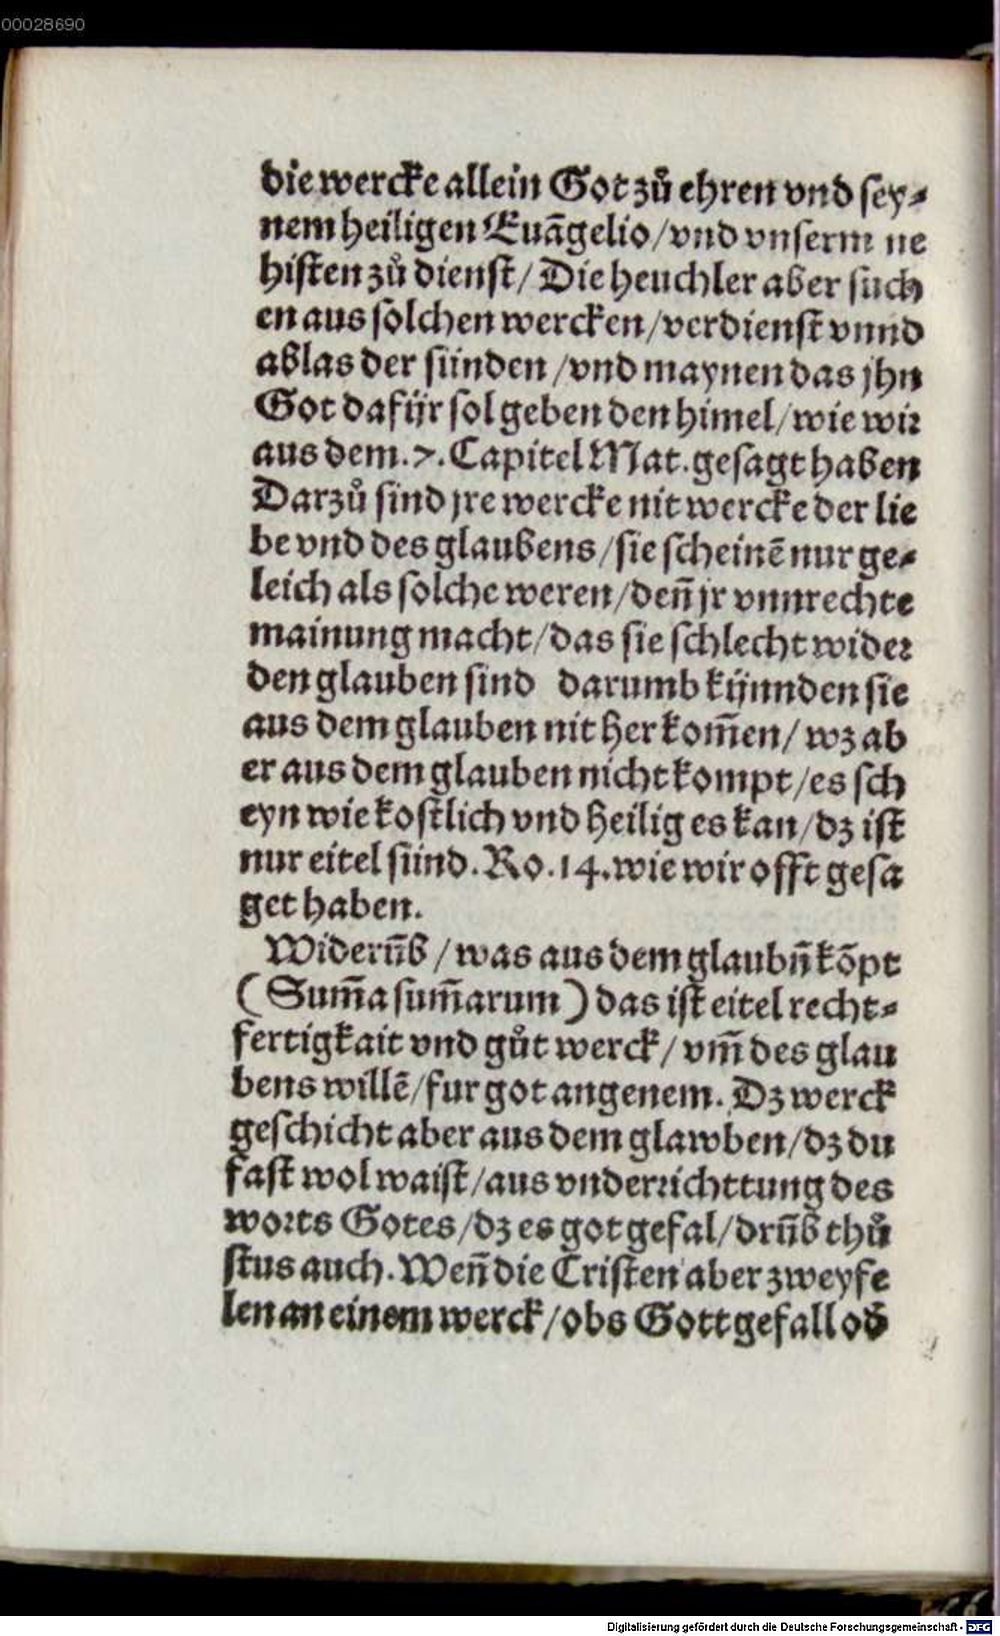 00028690
die wercke allein Got zů ehren vnd sey⸗
nem heiligen Euãgelio/vnd vnserm ne
histen zů dienst/ Die heuchler aber such
en aus solchen wercken/verdienst vnnd
ablas der sünden /vnd maynen das jhn
Got dafür sol geben den himel/wie wir
aus dem.7.Capitel Mat.gesagt haben
Darzů sind jre wercke nit wercke der lie
be vnd des glaubens/sie scheinẽ nur ge⸗
leich als solche weren/deñ jr vnnrechte
mainung macht/das sie schlecht wider
den glauben sind darumb künnden sie
aus dem glauben nit her kom̃en/ wz ab
er aus dem glauben nicht kompt/es sch
eyn wie kostlich vnd heilig es kan/dz ist
nur eitel sünd.Ro.14.wie wir offt gesa
get haben.
Widerũb /was aus dem glaubñ kõpt
(Sum̃a sum̃arum) das ist eitel recht⸗
fertigkait vnd gůt werck/ vm̃ des glau
bens willẽ/fur got angenem. Dz werck
geschicht aber aus dem glawben/dz du
fast wol waist/aus vnderrichttung des
worts Gotes/dz es got gefal/drũb thů
stus auch.Weñ die Cristen aber zweyfe
len an einem werck/obs Gott gefall od̃
Digitalisierung gefördert durch die Deutsche Forschungsgemeinschaft - DFG